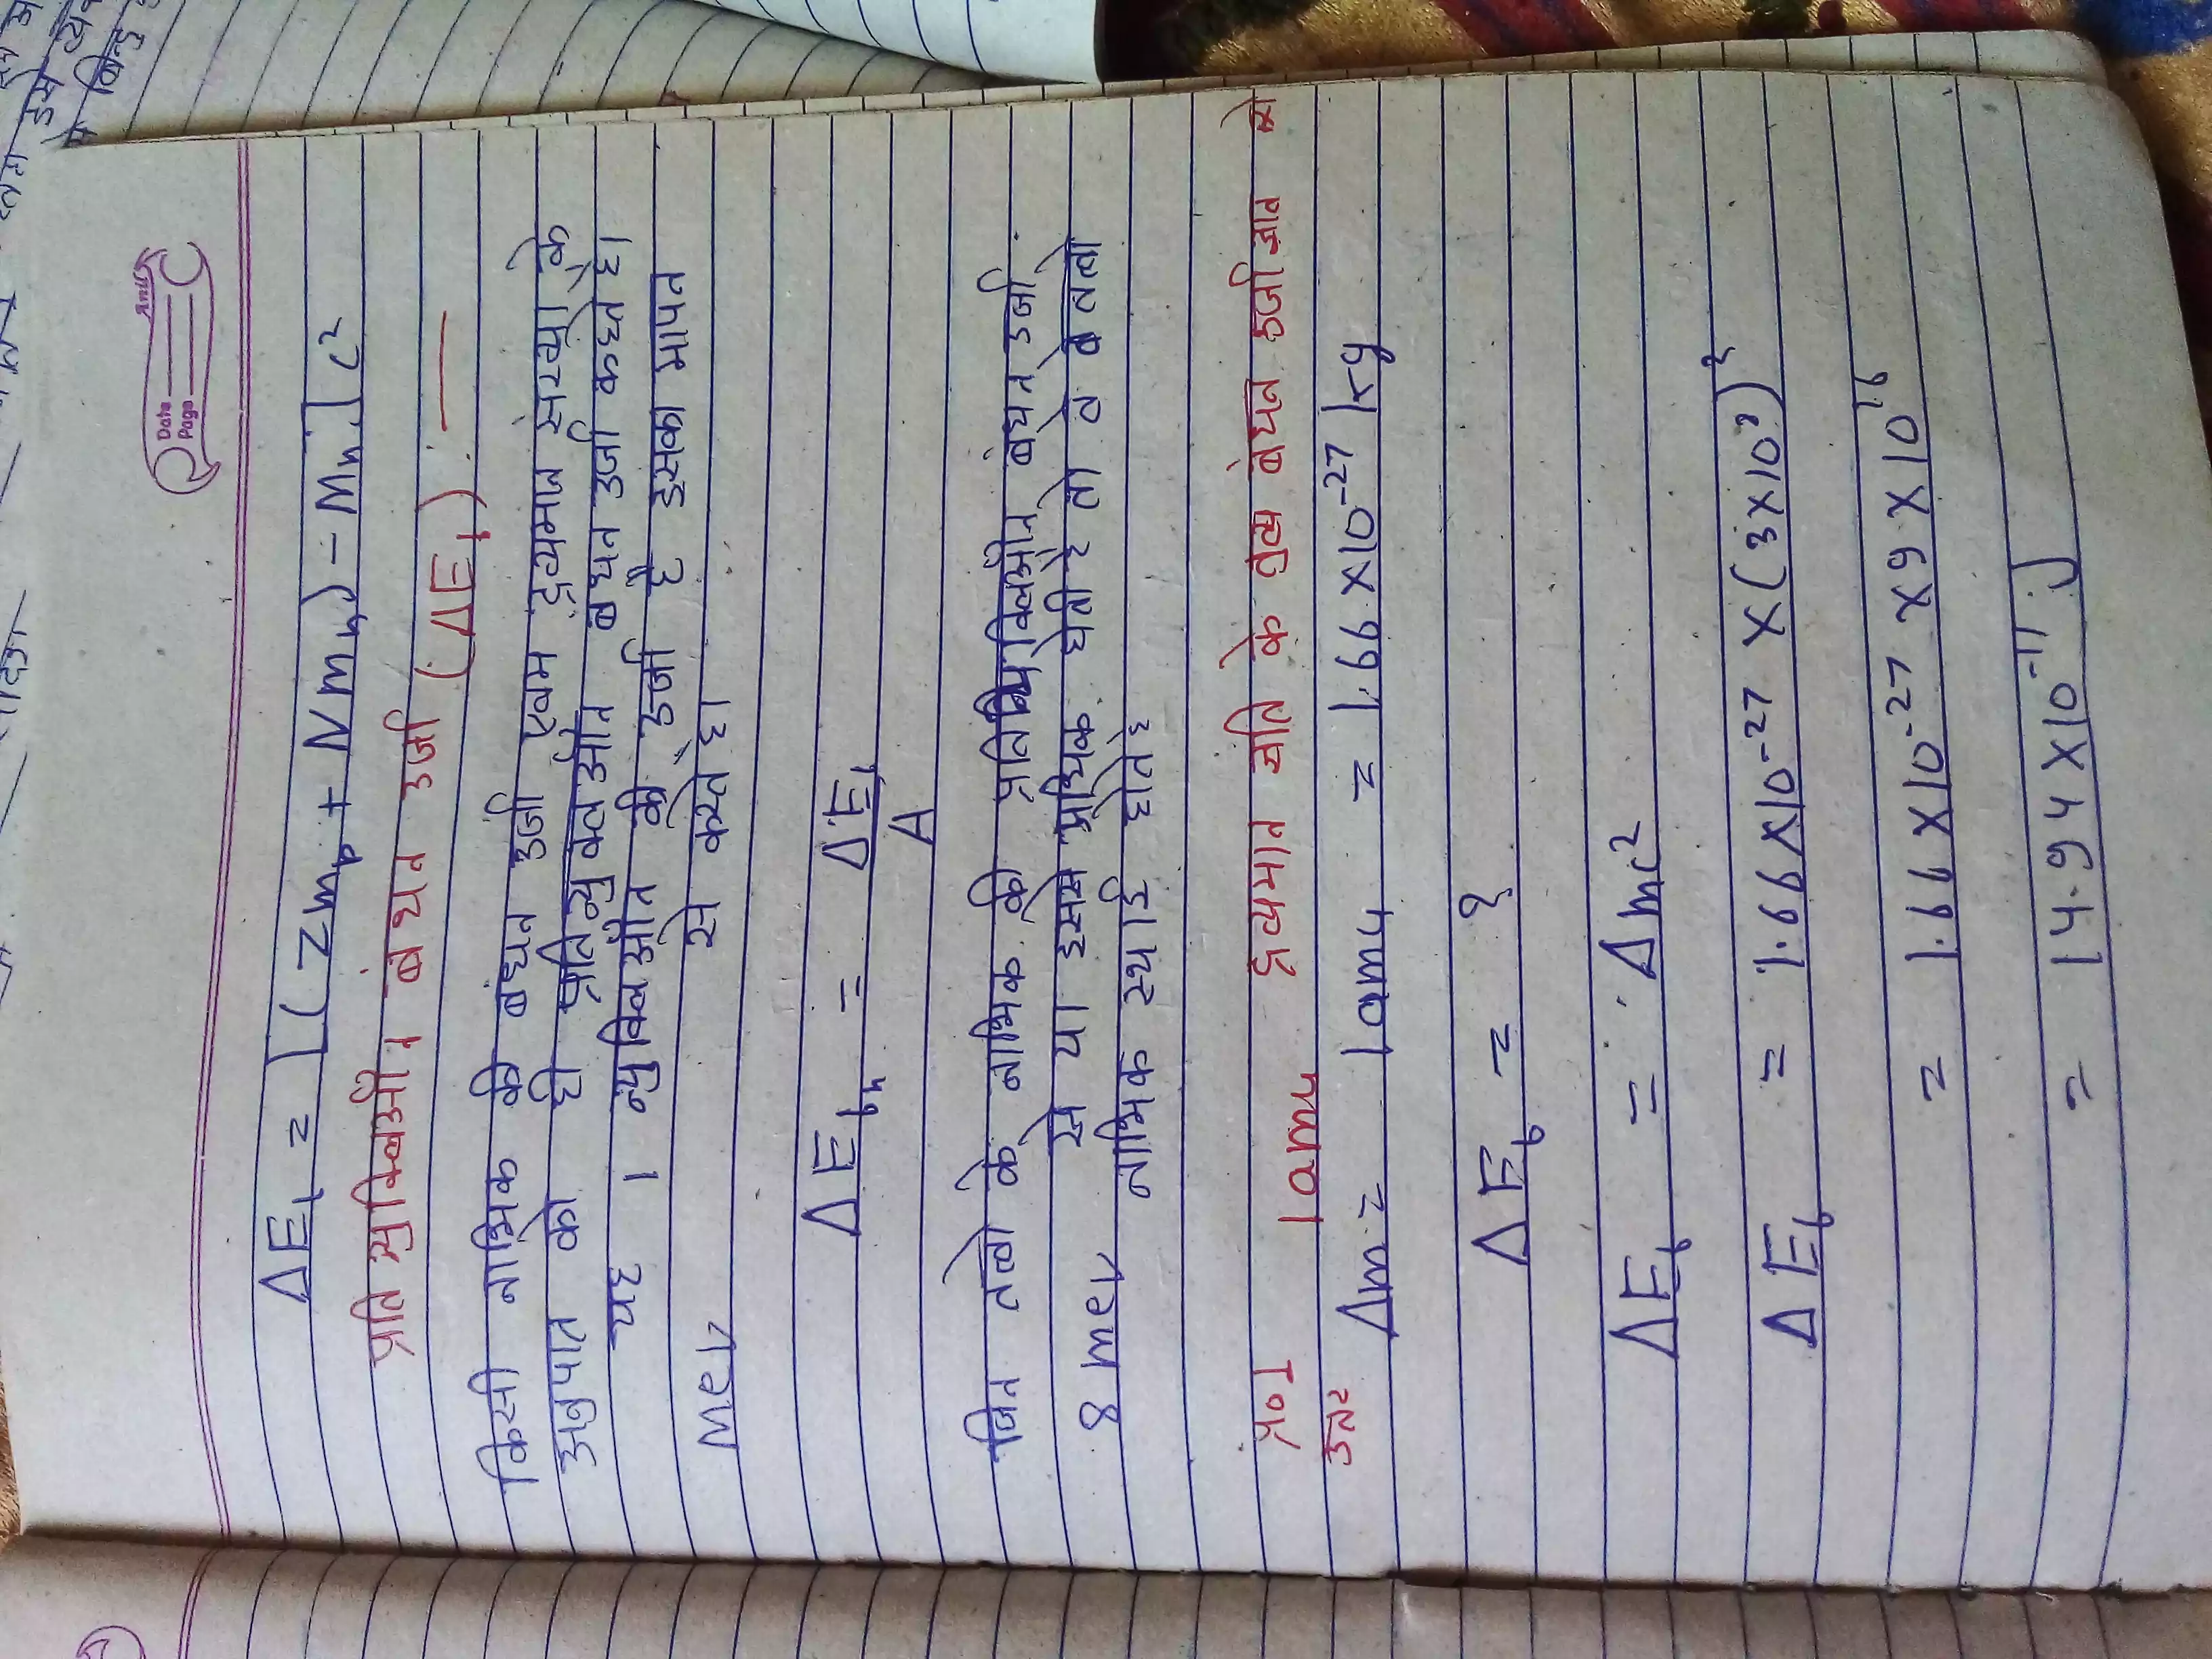 Anu
Date
Page
ΔEb = [(Zmp + Nmn) - Mn] c²
प्रति न्युक्लिऑन बंधन उर्जा (ΔEb) —
किसी नाभिक की बंधन उर्जा एवम द्रव्यमान संख्या के
अनुपात को ही प्रति न्युक्लऑन बंधन उर्जा कहते है।
यह 1 न्युक्लिऑन की उर्जा है इसका मापन
Mev से करते है।
ΔEbn = ΔEb
A
जिन तत्वो के नाभिक की प्रति न्युक्लिऑन बंधन उर्जा
8 mev से या इससे अधिक होती है तो वे तत्वो
नाभिक स्थाई होते है
प्र०1 1amu द्रव्यमान क्षति के तुल्य बंधन उर्जा ज्ञात करो
उत्तर Δm = 1amu = 1.66 × 10⁻²⁷ kg
ΔEb = ?
ΔEb = Δmc²
ΔEb = 1.66 × 10⁻²⁷ × (3 × 10⁸)²
= 1.66 × 10⁻²⁷ × 9 × 10¹⁶
= 14.94 × 10⁻¹¹ J